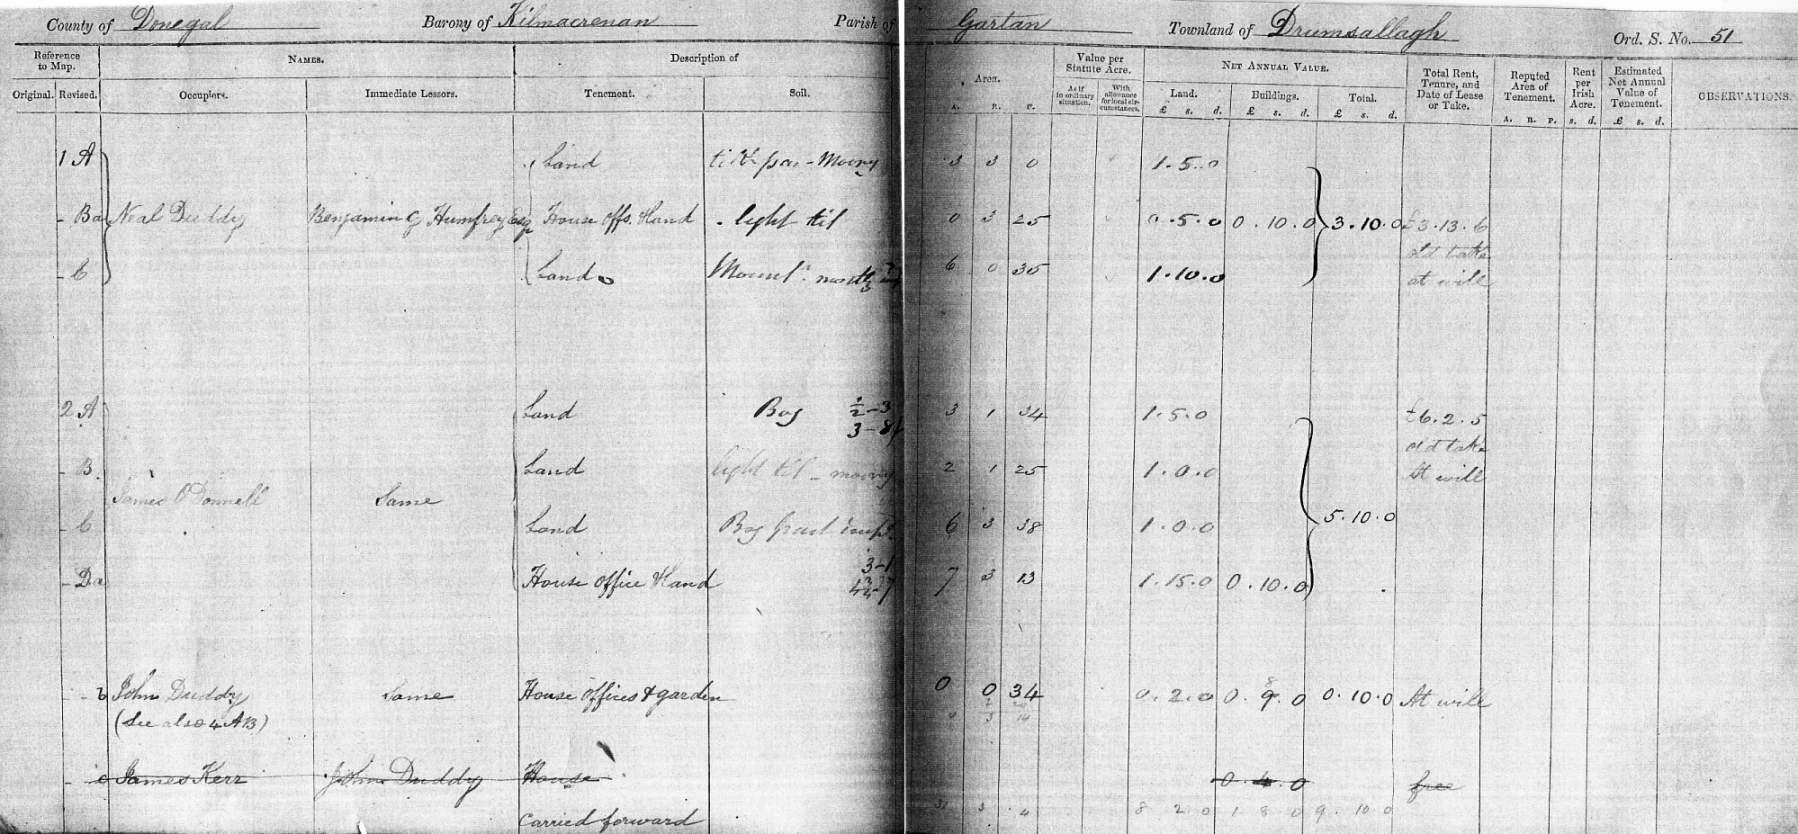 County of Donegal Barony of Kilmacrenan Parish of Gartan Townland of Drumsallagh Ord. S. No. 51
Reference to Map. NAMES. Description of Area. Value per Statute Acre. NET ANNUAL VALUE. Total Rent, Tenure, and Date of Lease or Take. Reputed Area of Tenement. Rent per Irish Acre. Estimated Net Annual Value of Tenement. OBSERVATIONS.
Original. Revised. Occupiers. Immediate Lessors. Tenement. Soil. As if in ordinary situation. With allowance for local circumstances. Land. Buildings. Total.
A. R. P. £ s. d. £ s. d. £ s. d. A. R. P. s. d. £ s. d.
1 A Land 3 3 0 1.5.0
- Ba Neal Duddy Benjamin G Humfrey Esq House offs. & land light til 0 3 25 0.5.0 0.10.0 3.10.0 £3.13.6
old take
- C Land 6 0 35 1.10.0 at will
2 A Land Bog 1/2-3 3 1 34 1.5.0 £6.2.5
3-8
old take
- B Land light til - moory 2 1 25 1.0.0 At will
James O'Donnell Same
- C Land Bog part 6 3 38 1.0.0 5.10.0
3-1
- Da House office & land 7 3 13 1.15.0 0.10.0
- b John Duddy Same House offices & garden 0 0 34 0.2.0 0.9.0 0.10.0 At will
8
(See also 4 AB)
- c James Kerr John Duddy House 0.4.0 free
Carried forward 31 3 4 8 2 0 1 8 0 9 10 0